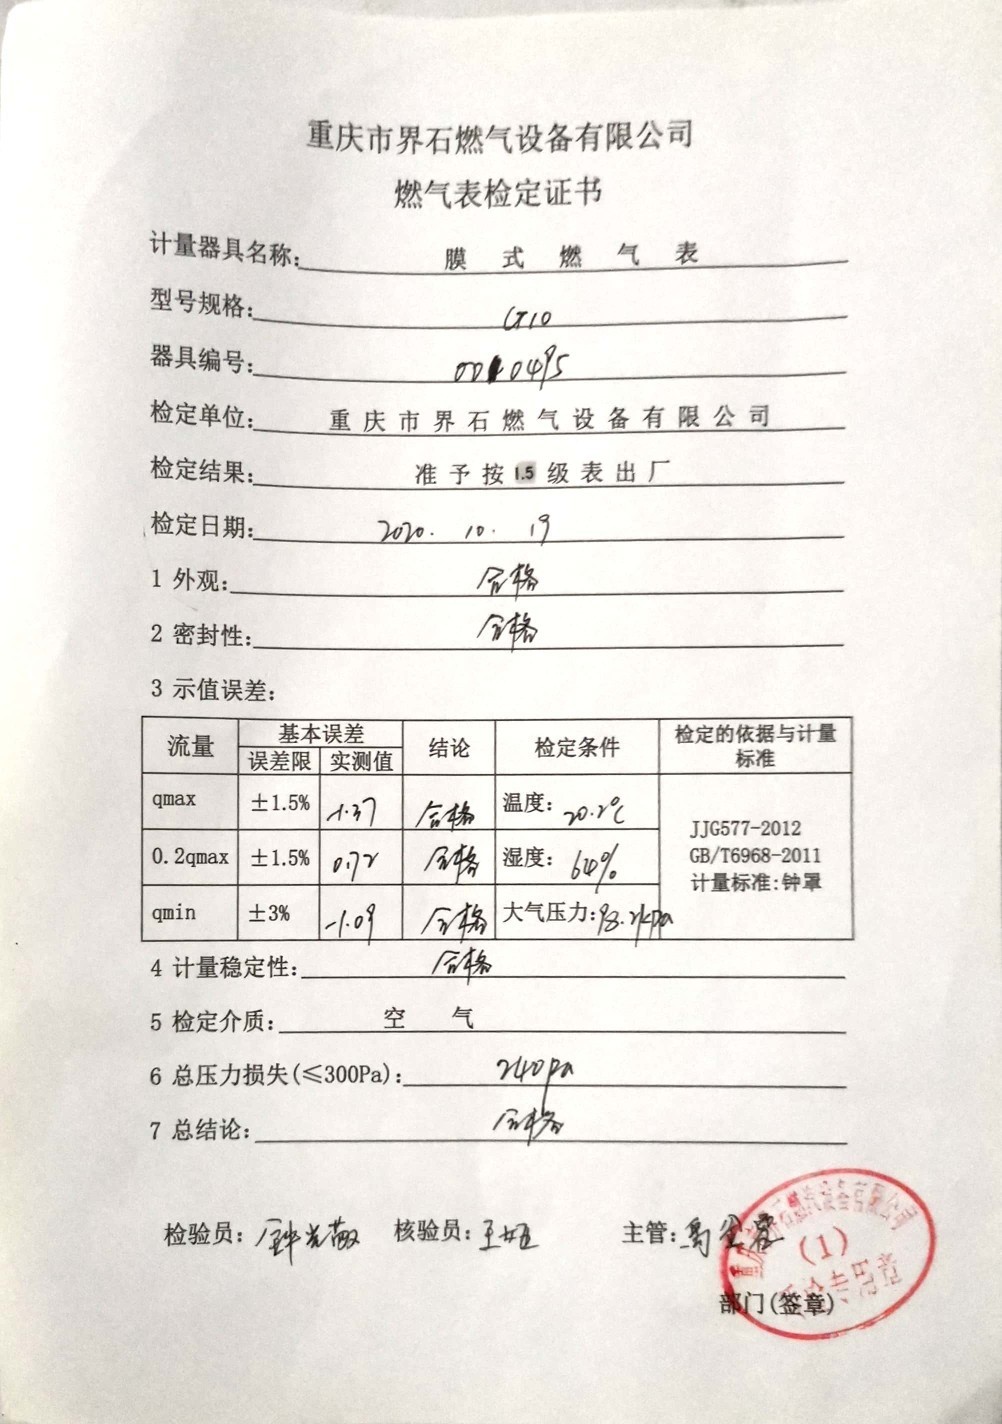 重庆市界石燃气设备有限公司
燃气表检定证书
计量器具名称: 膜式燃气表
型号规格: G10
器具编号: 0010495
检定单位: 重庆市界石燃气设备有限公司
检定结果: 准予按1.5级表出厂
检定日期: 2020. 10. 19
1 外观: 合格
2 密封性: 合格
3 示值误差:
流量 基本误差 结论 检定条件 检定的依据与计量标准
误差限 实测值
qmax ±1.5% -1.37 合格 温度: 20.2℃
0.2qmax ±1.5% 0.72 合格 湿度: 64%
qmin ±3% -1.09 合格 大气压力: 98.2kpa
JJG577-2012
GB/T6968-2011
计量标准:钟罩
4 计量稳定性: 合格
5 检定介质: 空气
6 总压力损失(≤300Pa): 240pa
7 总结论: 合格
检验员: 核验员: 主管:
部门(签章)
(1)